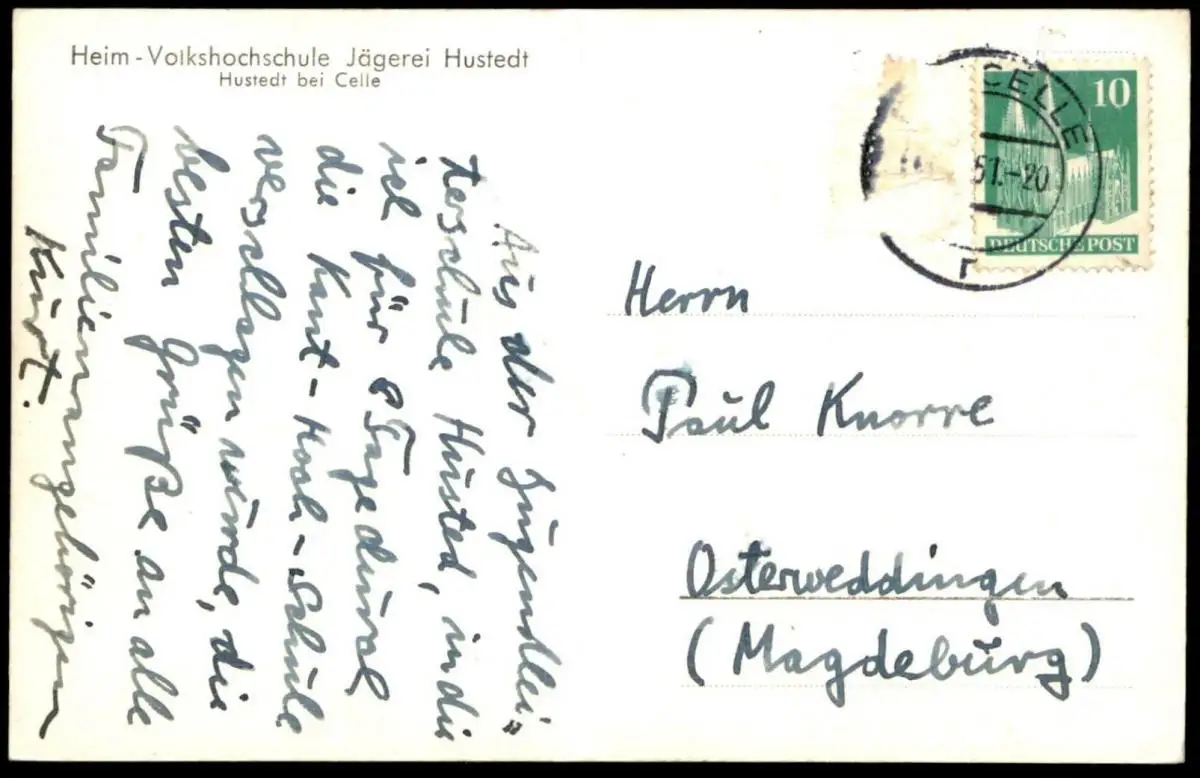 Heim-Volkshochschule Jägerei Hustedt
Hustedt bei Celle
Aus der Jugendlei„
terschule Husted, in die
ich für 8 Tage durch
die Kant-Hoch-Schule
verschlagen wurde, die
besten Grüße an alle
Familienangehörigen
Kurt.
CELLE
51.-20
r
10
DEUTSCHE POST
Herrn
Paul Knorre
Osterweddingen
(Magdeburg)